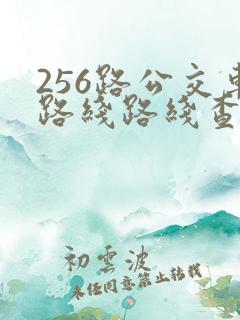 256路公交車
路线路线查
初雲波
未经同意禁止转载